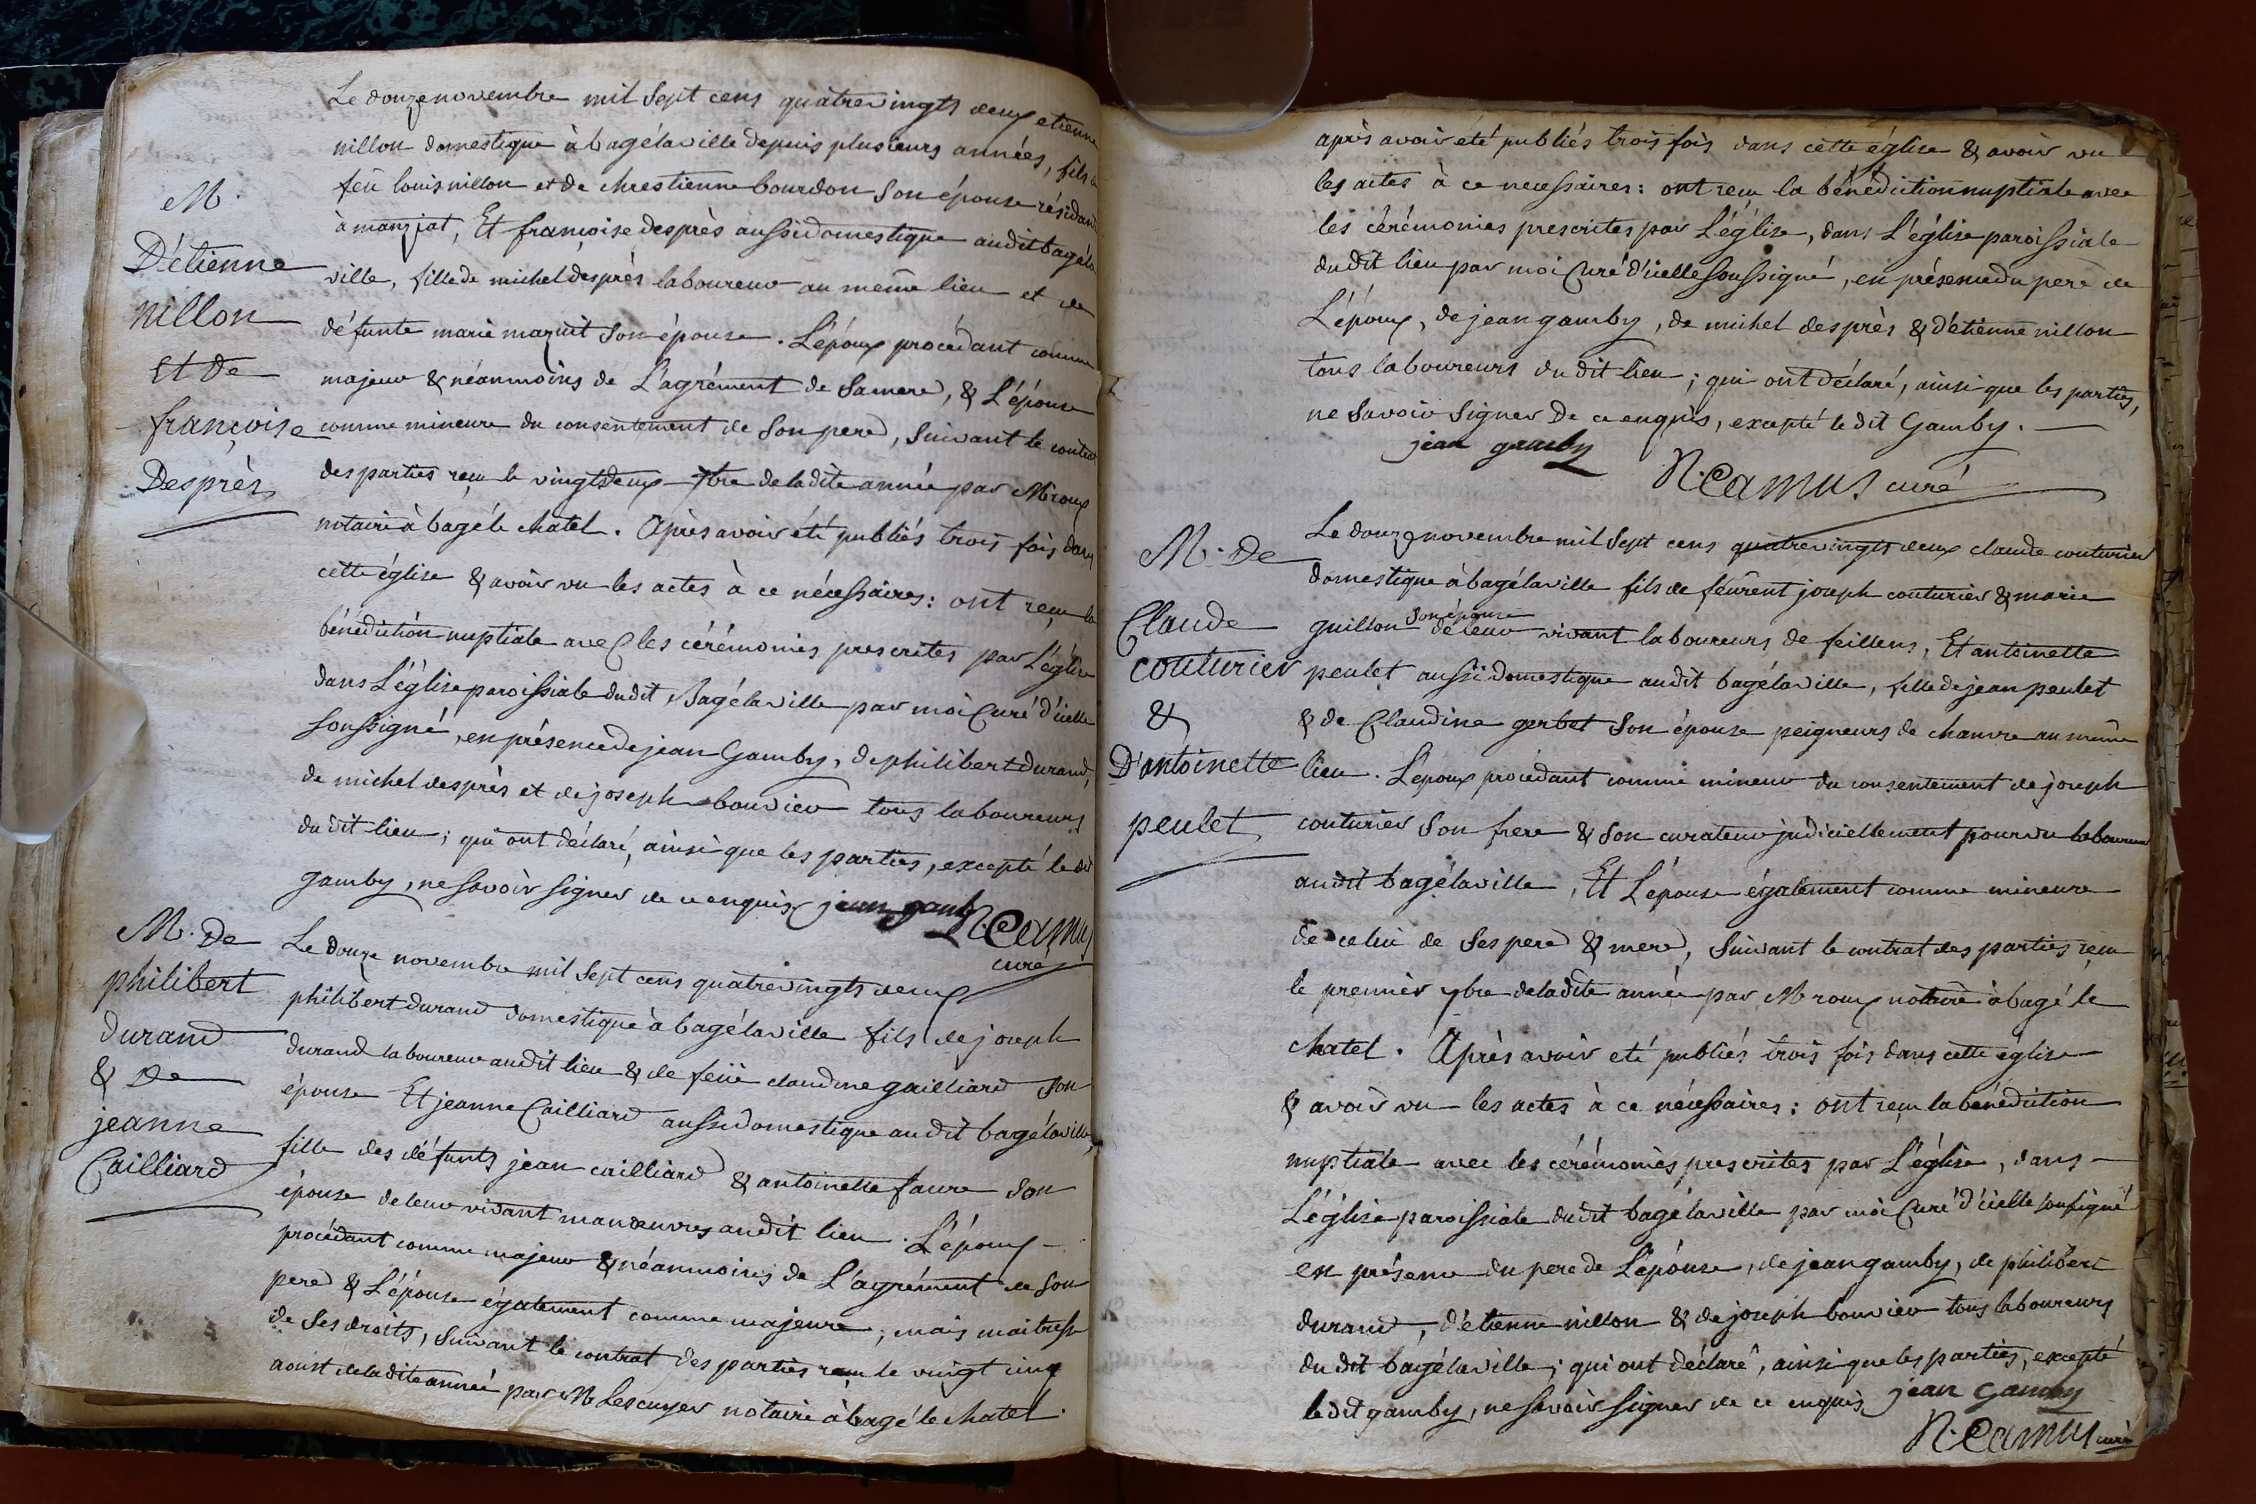 Le douze novembre mil Sept cens quatrevingts deux etienne
nillon domestique à bagélaville depuis plusieurs années, fils de
feu louis nillon et de chrestienne bourdon Son épouse résidante
à manziat, Et françoise desprès aussi domestique audit bagéla
ville, fille de michel desprès laboureur au même lieu et de
défunte marie maquit Son épouse. L'époux procédant comme
majeur & néanmoins de L'agrément de Sa mere, & L'épouse
comme mineure du consentement de Son pere, Suivant le contrat
des parties reçu le vingtdeux 7bre de ladite année par Mr roux
notaire à bagé le chatel. Après avoir été publiés trois fois dans
cette église & avoir vu les actes à ce nécessaires: ont reçu la
bénédiction nuptiale avec les cérémonies prescrites par L'église
dans L'église paroissiale dudit Bagélaville par moi Curé d'icelle
Soussigné, en présence de jean Gamby, de philibert durand,
de michel desprès et de joseph bouvier tous laboureurs
du dit lieu; qui ont déclaré, ainsi que les parties, excepté le dit
gamby, ne Savoir Signer de ce enquis jean gamby N. Camus
curé
M.
D'étienne
nillon
Et De
françoise
Desprès
Le douze novembre mil Sept cens quatrevingts deux
philibert durand domestique à bagélaville fils de joseph
durand laboureur audit lieu & de feüe claudine gailliard Son
épouse Et jeanne Cailliard aussi domestique audit bagélaville,
fille des défunts jean cailliard & antoinette faure Son
épouse de leur vivant manoeuvres audit lieu. L'époux
procédant comme majeur & néanmoins de L'agrément de Son
pere & L'épouse également comme majeure, mais maitresse
de Ses droits, Suivant le contrat des parties reçu le vingt cinq
aoust de ladite année par Mr Lescuyer notaire à bagé le chatel.
M. De
philibert
durand
& De
jeanne
Cailliard
après avoir été publiés trois fois dans cette église & avoir vu
les actes à ce necessaires: ont reçu la bénédiction nuptiale avec
les cérémonies prescrites par L'église, dans L'église paroissiale
du dit lieu par moi Curé d'icelle Soussigné, en présence du pere de
L'époux, de jean gamby, de michel desprès & d'étienne nillon
tous laboureurs du dit lieu; qui ont déclaré, ainsi que les parties,
ne Savoir Signer De ce enquis, excepté le dit Gamby.
jean gamby
N. Camus curé
Le douze novembre mil Sept cens quatrevingts deux claude couturier
domestique à bagélaville fils de feurent joseph couturier & marie
guillon Son épouse de leur vivant laboureurs de feillens, Et antoinette
peulet aussi domestique audit bagélaville, fille de jean peulet
& de Claudine gerbet Son épouse peigneurs de chanvre au même
lieu. L'epoux procédant comme mineur du consentement de joseph
couturier Son frere & Son curateur judiciellement pourvu laboureur
audit bagélaville, Et L'épouse également comme mineure
de celui de Ses pere & mere, Suivant le contrat des parties reçu
le premier 9bre de ladite année par Mr roux notaire à bagé le
chatel. Après avoir eté publiés trois fois dans cette église
& avoir vu les actes à ce nécessaires: ont reçu la bénédiction
nuptiale avec les cérémonies prescrites par L'église, dans
L'église paroissiale dudit bagélaville par moi Curé d'icelle Soussigné
en présence du pere de L'épouse, de jean gamby, de philibert
durand, d'étienne nillon & de joseph bouvier tous laboureurs
du dit bagélaville; qui ont déclaré, ainsi que les parties, excepté
le dit gamby, ne Savoir Signer de ce enquis jean Gamby
N. Camus curé
M. De
Claude
couturier
&
D'antoinette
peulet